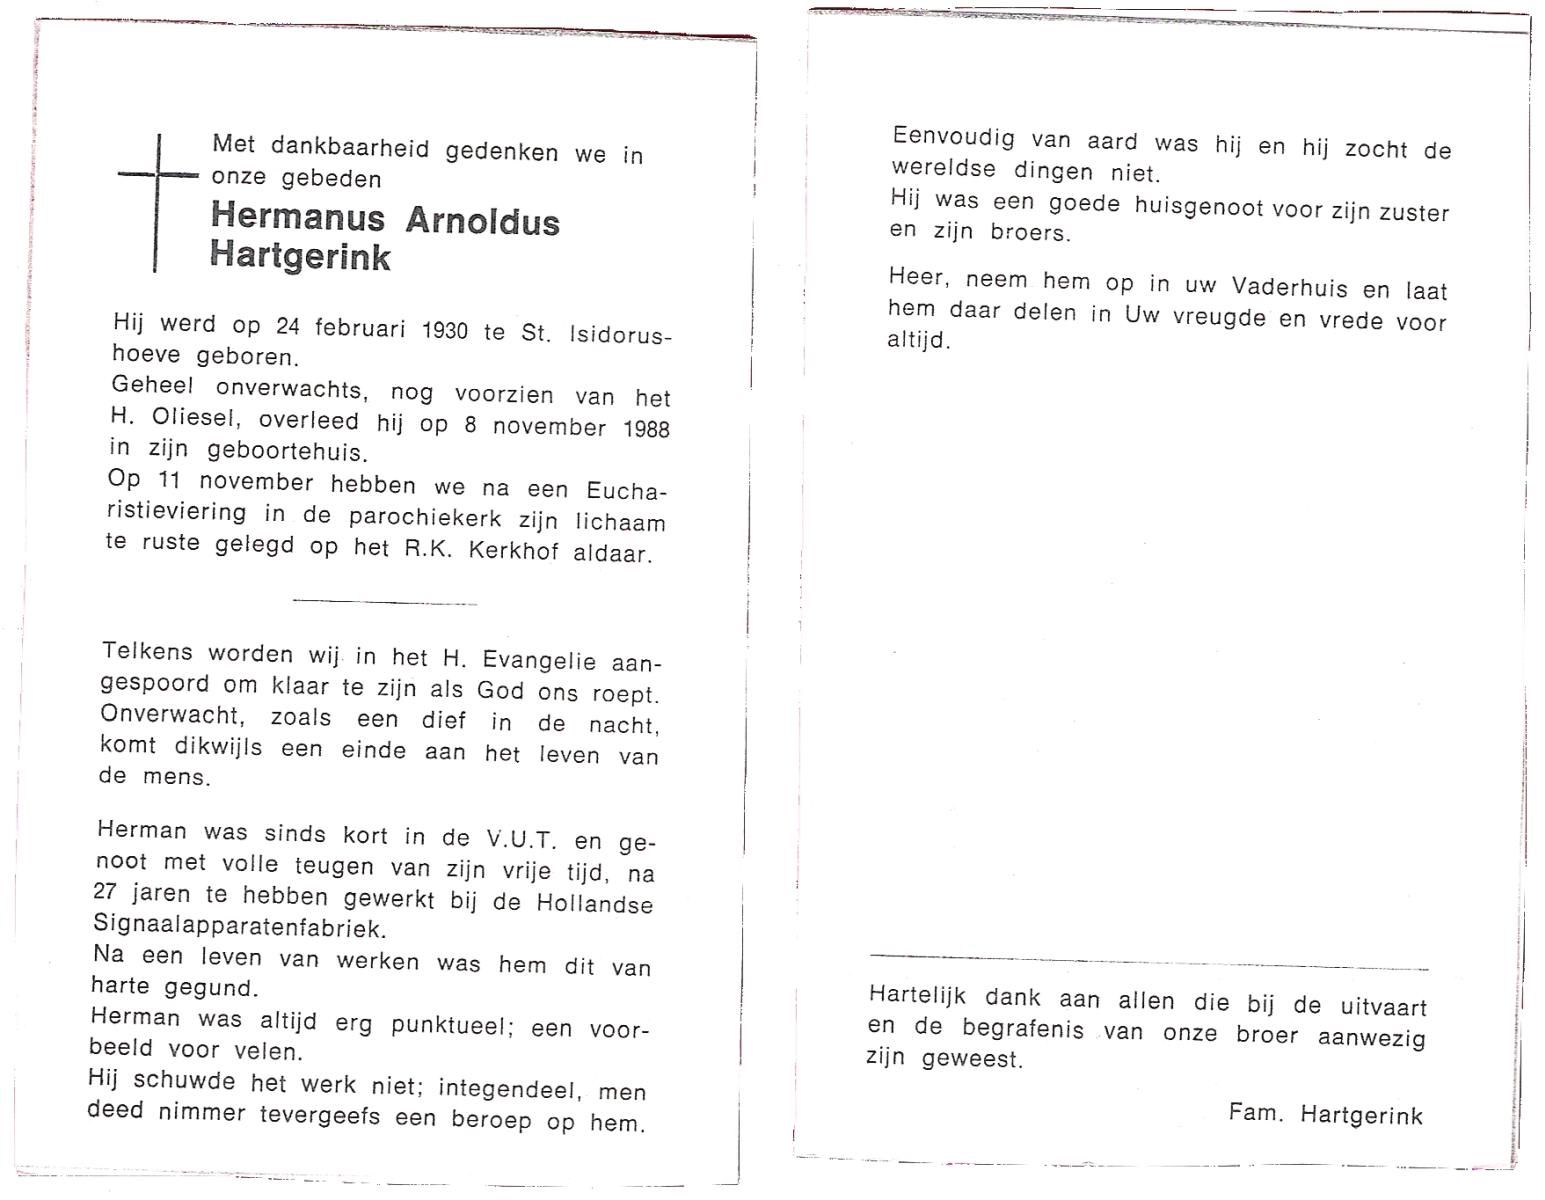 Met dankbaarheid gedenken we in
onze gebeden
Hermanus Arnoldus
Hartgerink
Hij werd op 24 februari 1930 te St. Isidorus-
hoeve geboren.
Geheel onverwachts, nog voorzien van het
H. Oliesel, overleed hij op 8 november 1988
in zijn geboortehuis.
Op 11 november hebben we na een Eucha-
ristieviering in de parochiekerk zijn lichaam
te ruste gelegd op het R.K. Kerkhof aldaar.
Telkens worden wij in het H. Evangelie aan-
gespoord om klaar te zijn als God ons roept.
Onverwacht, zoals een dief in de nacht,
komt dikwijls een einde aan het leven van
de mens.
Herman was sinds kort in de V.U.T. en ge-
noot met volle teugen van zijn vrije tijd, na
27 jaren te hebben gewerkt bij de Hollandse
Signaalapparatenfabriek.
Na een leven van werken was hem dit van
harte gegund.
Herman was altijd erg punktueel; een voor-
beeld voor velen.
Hij schuwde het werk niet; integendeel, men
deed nimmer tevergeefs een beroep op hem.
Eenvoudig van aard was hij en hij zocht de
wereldse dingen niet.
Hij was een goede huisgenoot voor zijn zuster
en zijn broers.
Heer, neem hem op in uw Vaderhuis en laat
hem daar delen in Uw vreugde en vrede voor
altijd.
Hartelijk dank aan allen die bij de uitvaart
en de begrafenis van onze broer aanwezig
zijn geweest.
Fam. Hartgerink